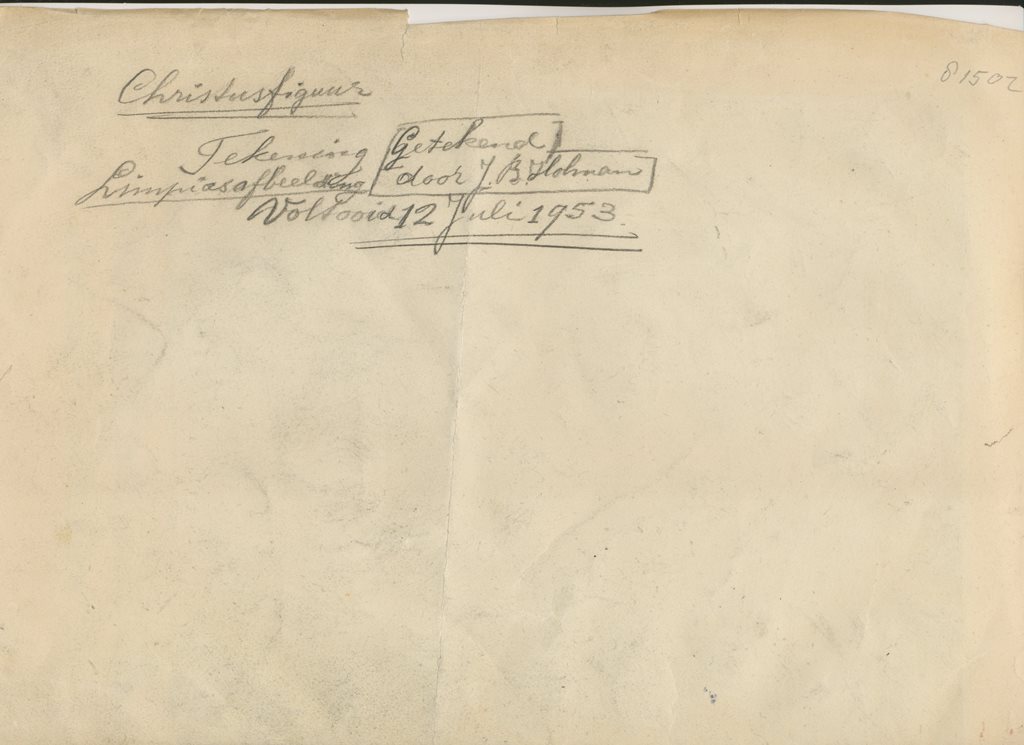 81502
Christusfiguur
Tekening [Getekend]
Limpiasafbeelding [door J. B. Holman]
Voltooid 12 Juli 1953.